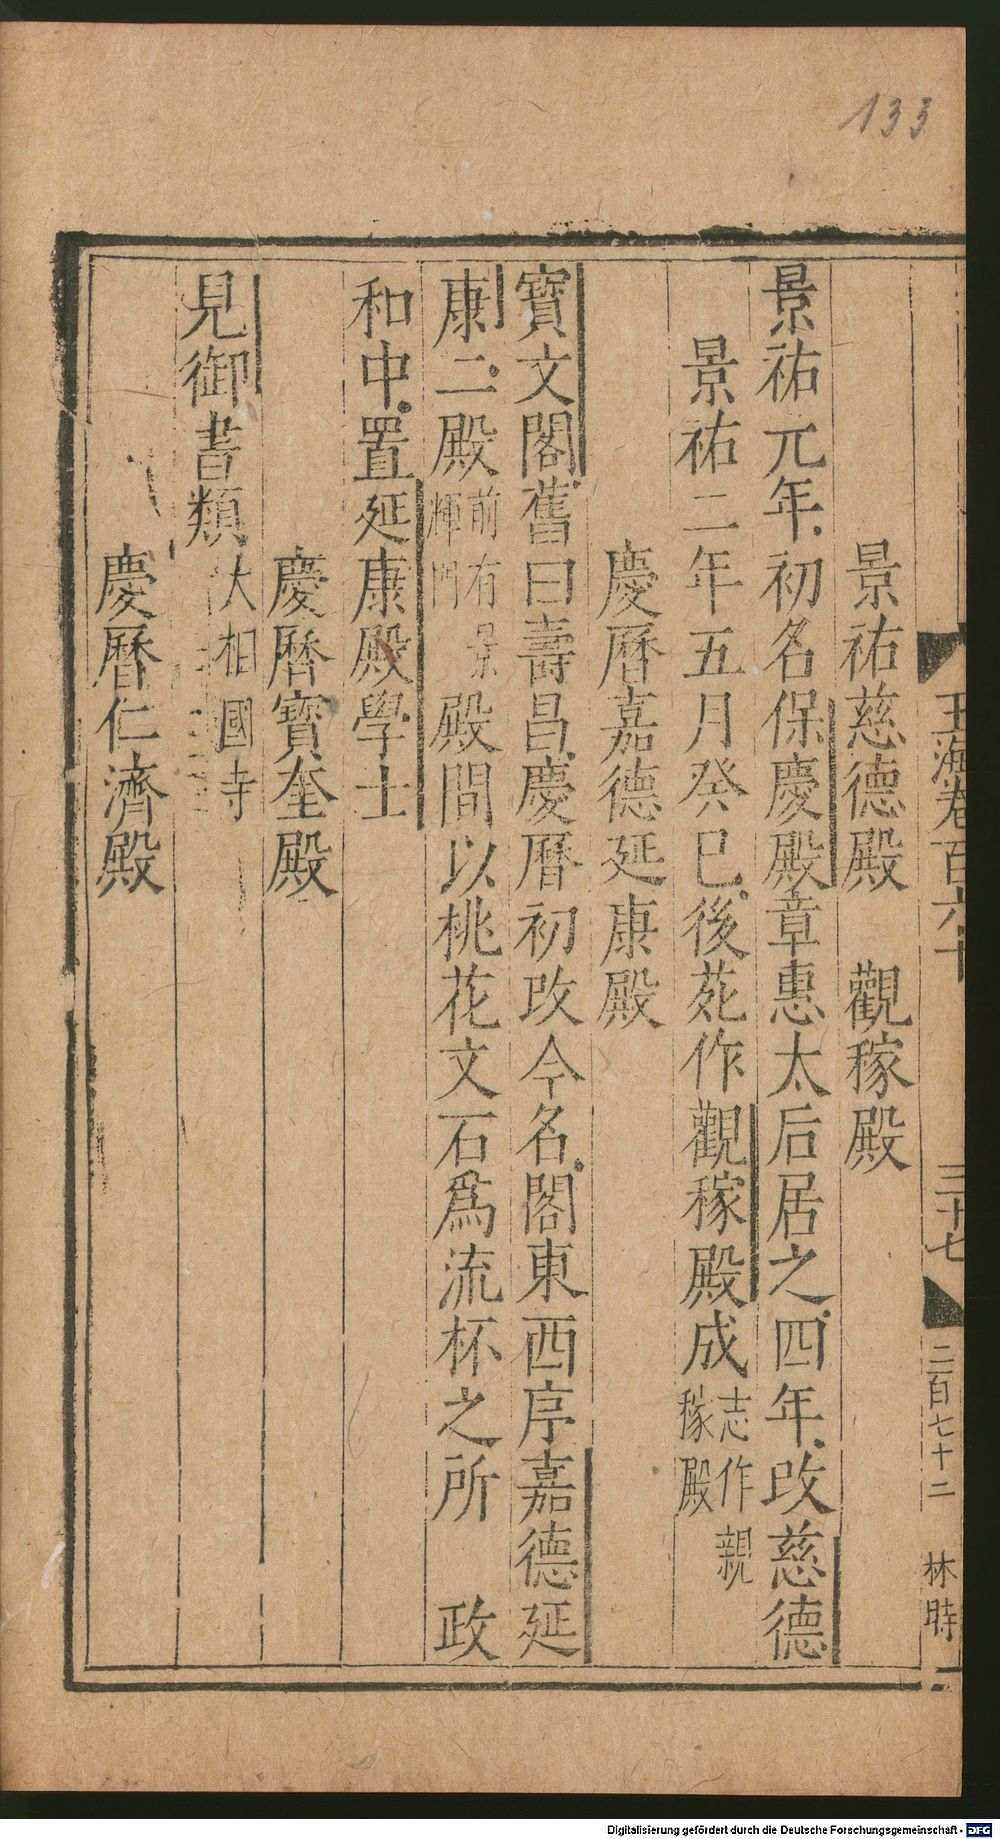 133
玉海卷百六十
三十七
二百七十二
林時
景祐慈德殿　觀稼殿
景祐元年初名保慶殿章惠太后居之四年改慈德
景祐二年五月癸巳後苑作觀稼殿成志作親稼殿
慶曆嘉德延康殿
寶文閣舊曰壽昌慶曆初改今名閣東西序嘉德延
康二殿前有景輝門殿間以桃花文石爲流杯之所　政
和中置延康殿學士
慶曆寶奎殿
見御書類大相國寺
慶曆仁濟殿
Digitalisierung gefördert durch die Deutsche Forschungsgemeinschaft - DFG